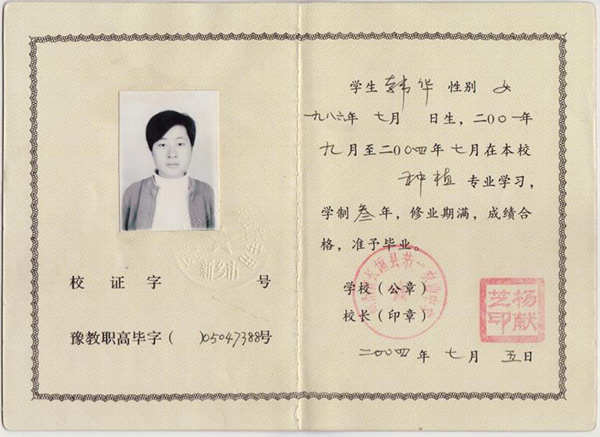 新乡市
校 证 字 号
豫教职高毕字( )05047388号
学生 韩华 性别 女
一九八六年 七月 日生,二〇〇一年
九月至二〇〇四年七月在本校
种植 专业学习,
学制 叁 年,修业期满,成绩合
格,准予毕业。
学校(公章)
校长(印章)
杨献芝印
二〇〇四 年 七 月 五 日